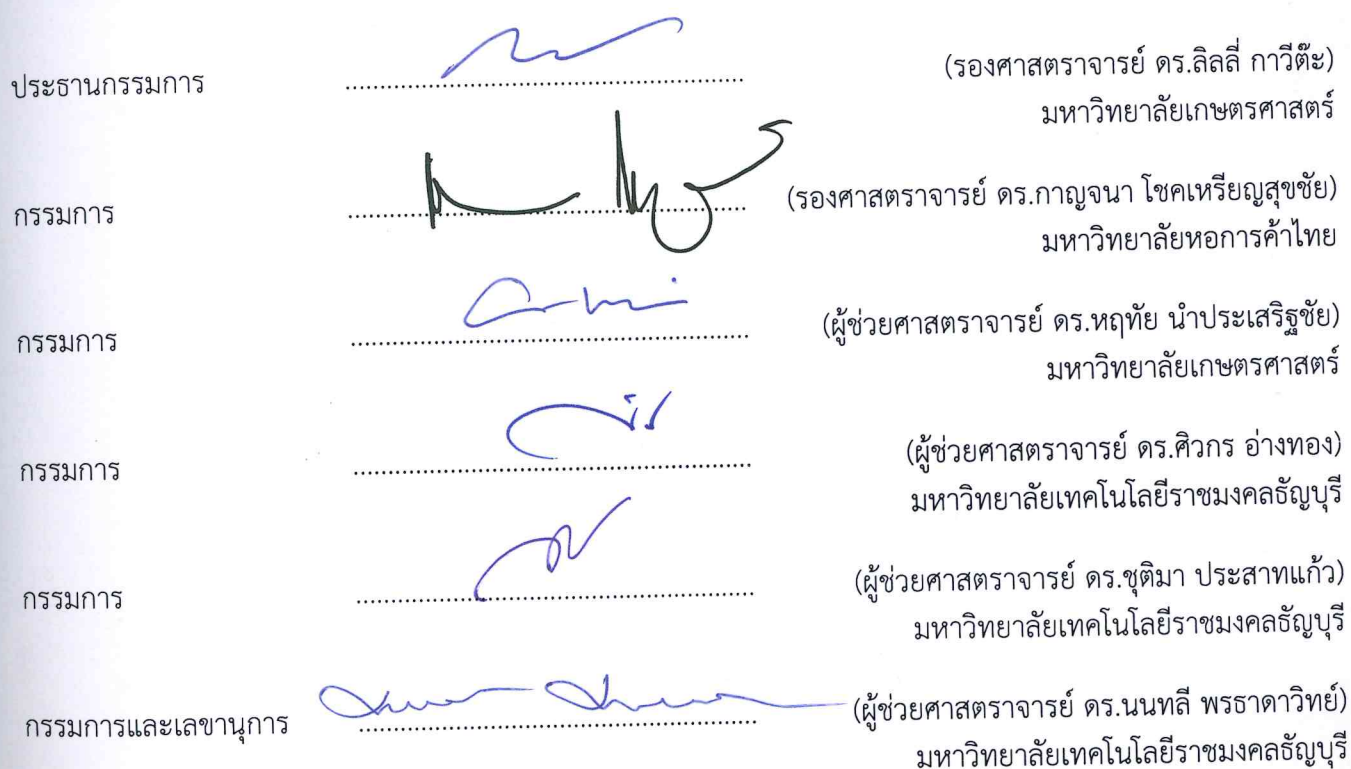 ประธานกรรมการ ........................................ (รองศาสตราจารย์ ดร.ลิลลี่ กาวีต๊ะ)
มหาวิทยาลัยเกษตรศาสตร์
กรรมการ ........................................ (รองศาสตราจารย์ ดร.กาญจนา โชคเหรียญสุขชัย)
มหาวิทยาลัยหอการค้าไทย
กรรมการ ........................................ (ผู้ช่วยศาสตราจารย์ ดร.หฤทัย นำประเสริฐชัย)
มหาวิทยาลัยเกษตรศาสตร์
กรรมการ ........................................ (ผู้ช่วยศาสตราจารย์ ดร.ศิวกร อ่างทอง)
มหาวิทยาลัยเทคโนโลยีราชมงคลธัญบุรี
กรรมการ ........................................ (ผู้ช่วยศาสตราจารย์ ดร.ชุติมา ประสาทแก้ว)
มหาวิทยาลัยเทคโนโลยีราชมงคลธัญบุรี
กรรมการและเลขานุการ ........................................ (ผู้ช่วยศาสตราจารย์ ดร.นนทลี พรธาดาวิทย์)
มหาวิทยาลัยเทคโนโลยีราชมงคลธัญบุรี